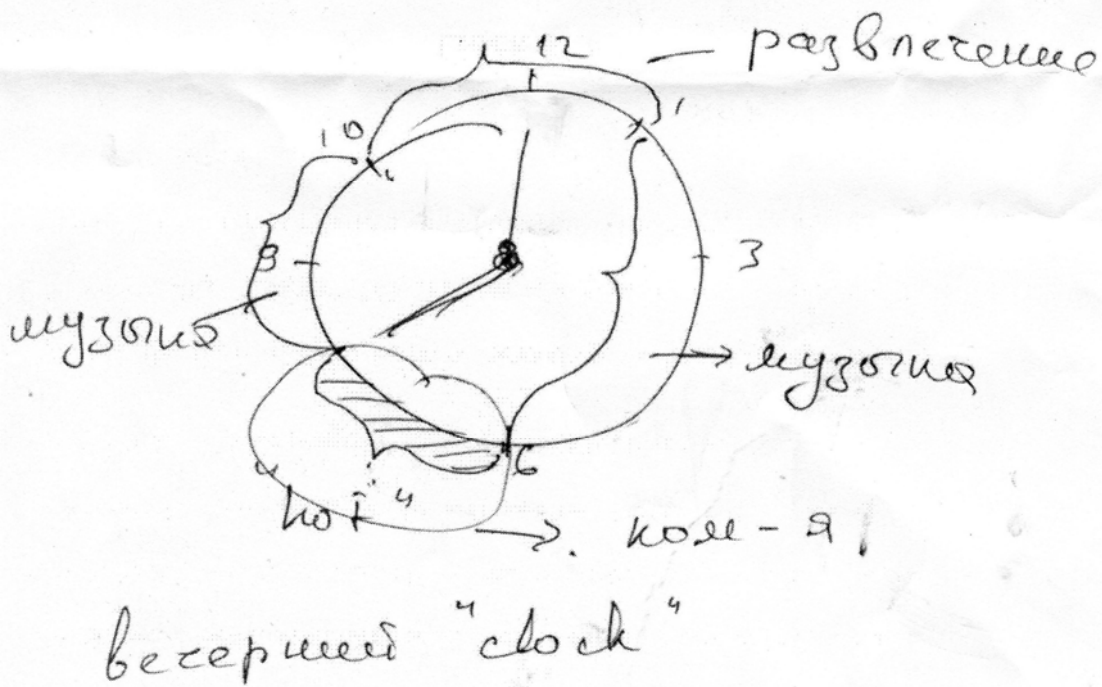 12 — развлечение
1
10
9
3
музыка
музыка
6
"hot"
ком-я
вечерний "clock"